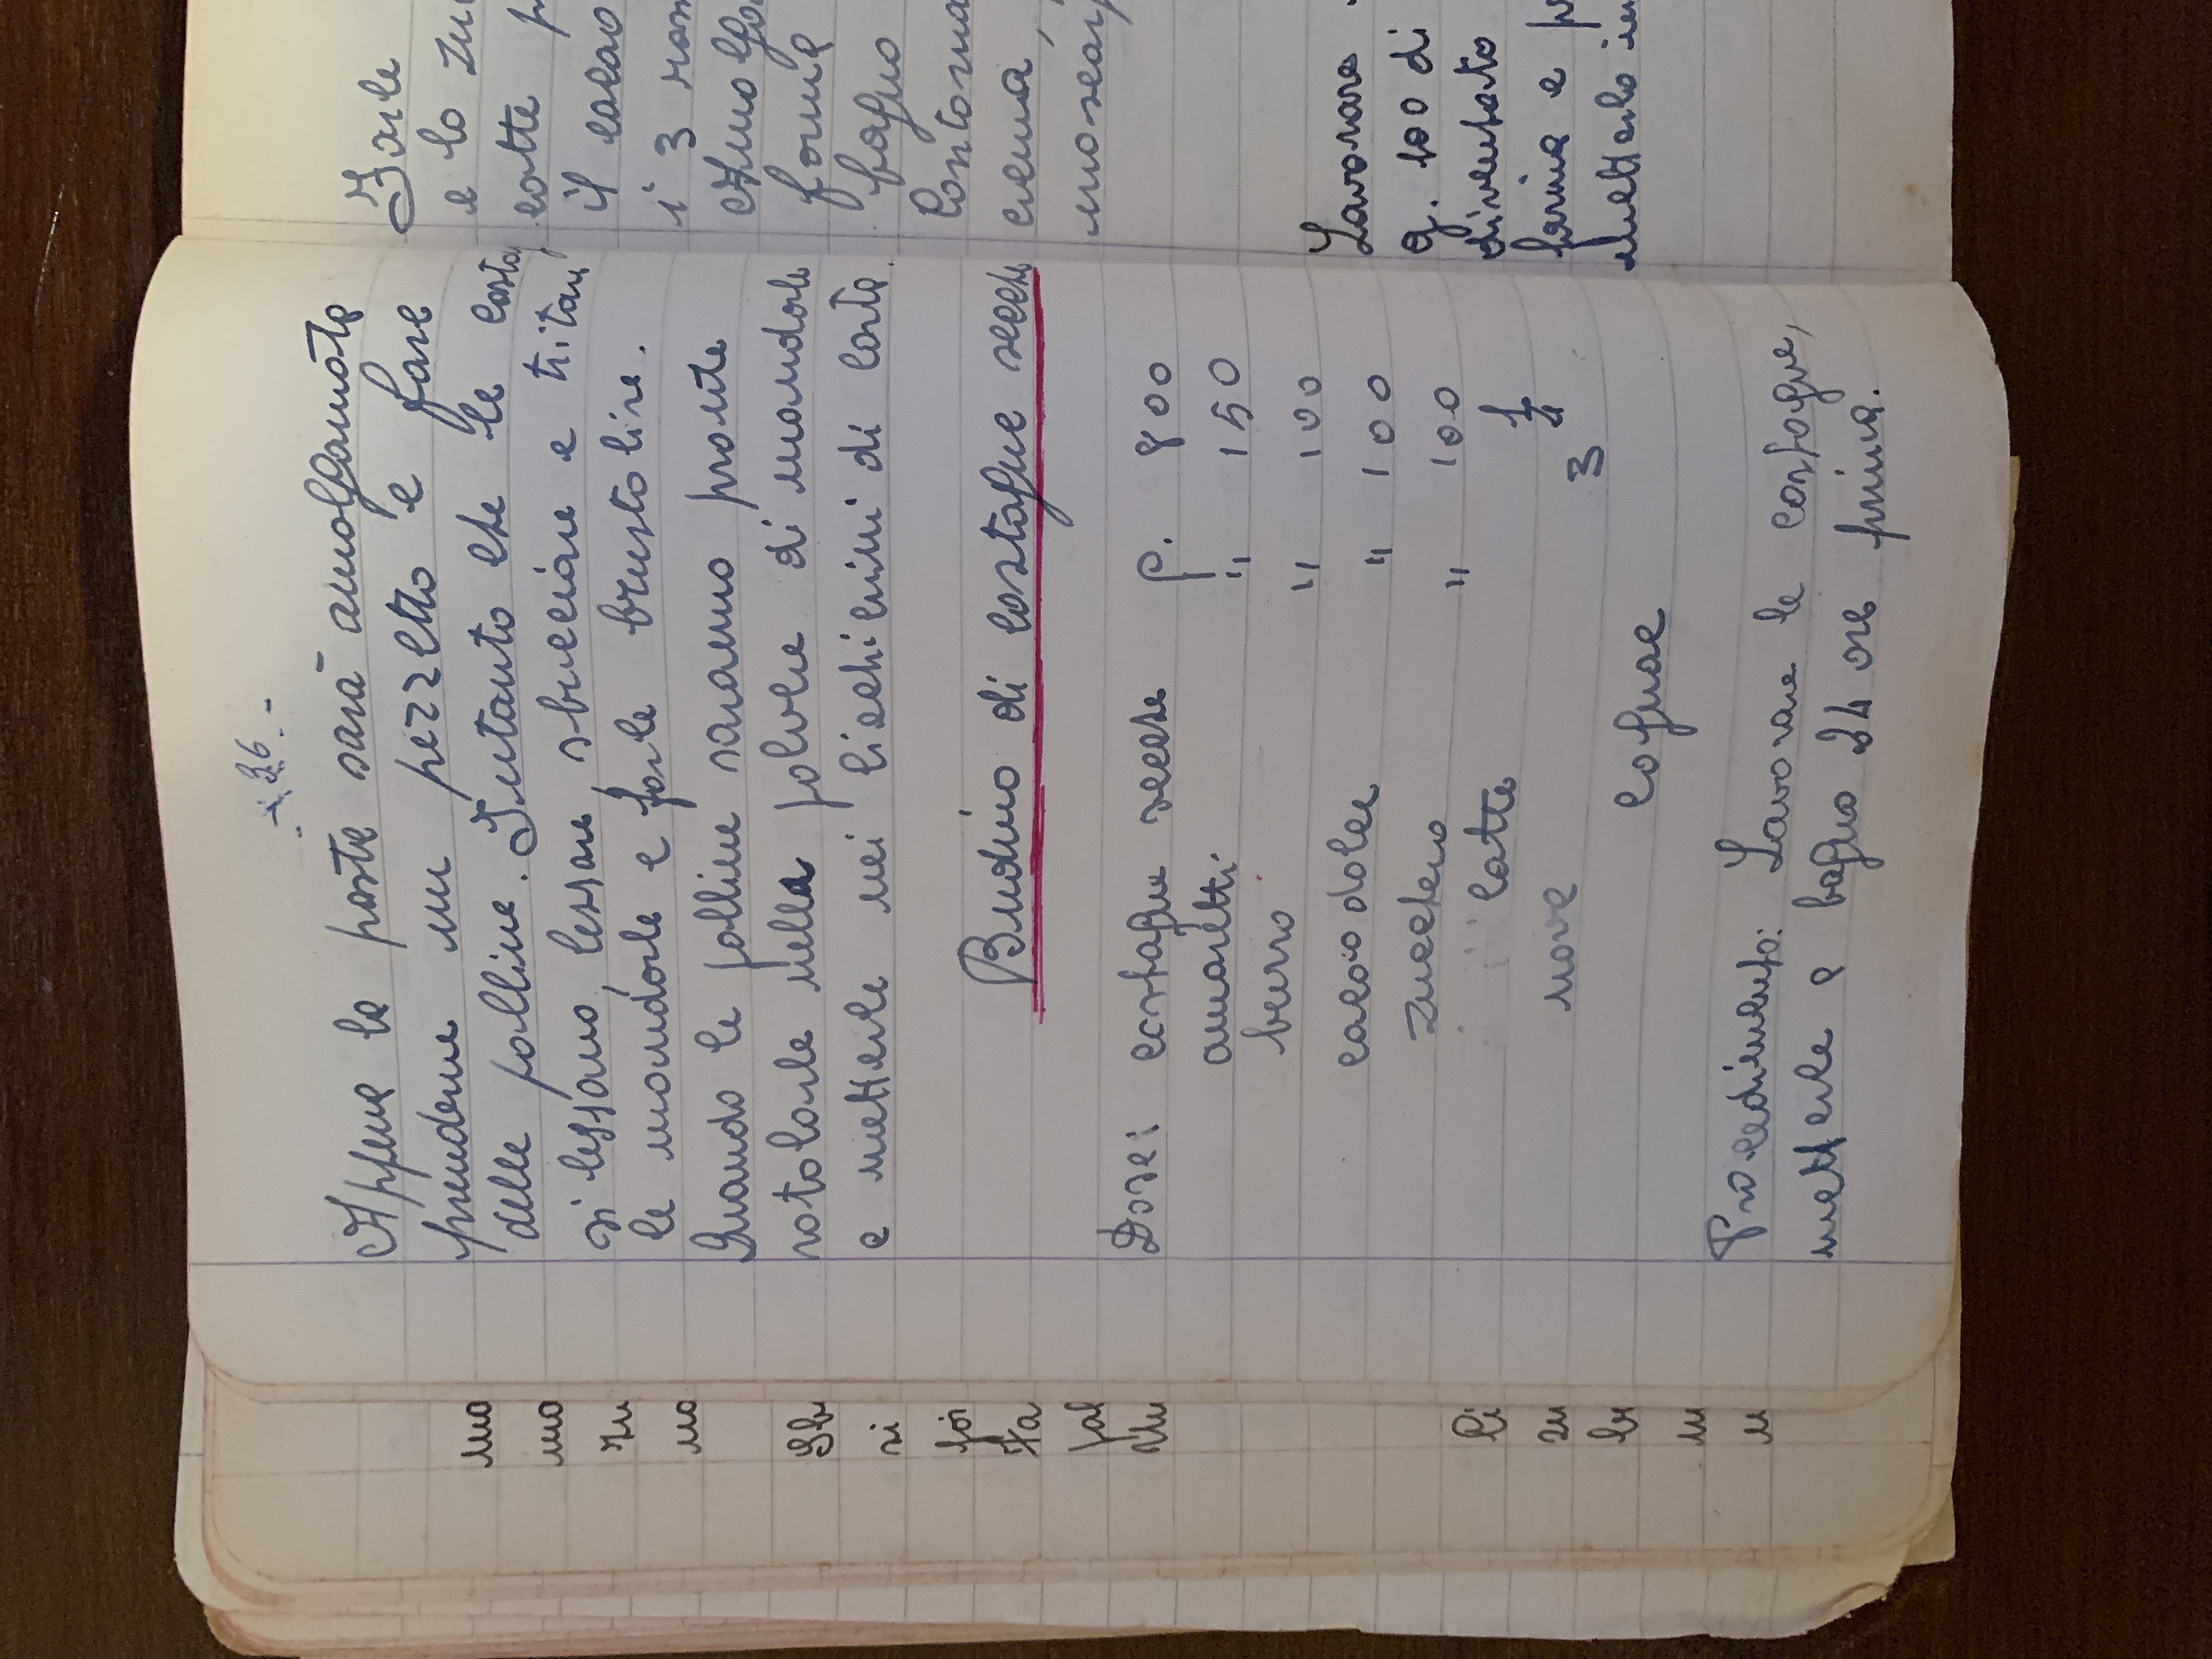 - 36 -
Appena la pasta sarà amolgamata
prenderne un pezzetto e fare
delle palline. Intanto che le casta
si lessano, lessare, sbucciare e tritare
le mandorle e farle brustolire.
Quando le palline saranno pronte
rotolarle nella polvere di mandorle
e metterle nei cicchicini di carta.
Budino di castagne secche
Dose: castagne secche g. 800
amaretti " 150
burro " 100
cacao dolce " 100
zucchero " 100
latte 1/4
uova 3
cognac
Procedimento: Lavorare le castagne,
metterle a bagno 24 ore prima.
Farle
e lo zu
cotte p
il cacao
i 3 ross
Amolga
forma
bagno
Contorna
crema,
moscar
Lavorare
g. 100 di
diventato
farina e p
metterlo in
mo
mo
zu
mo
Sb
si
poi
Fa
pal
Un
Ci
zu
br
m